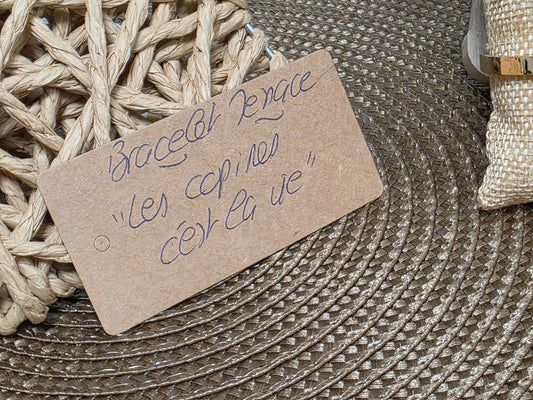 Bracelet Menace
"Les copines
c'est la vie"